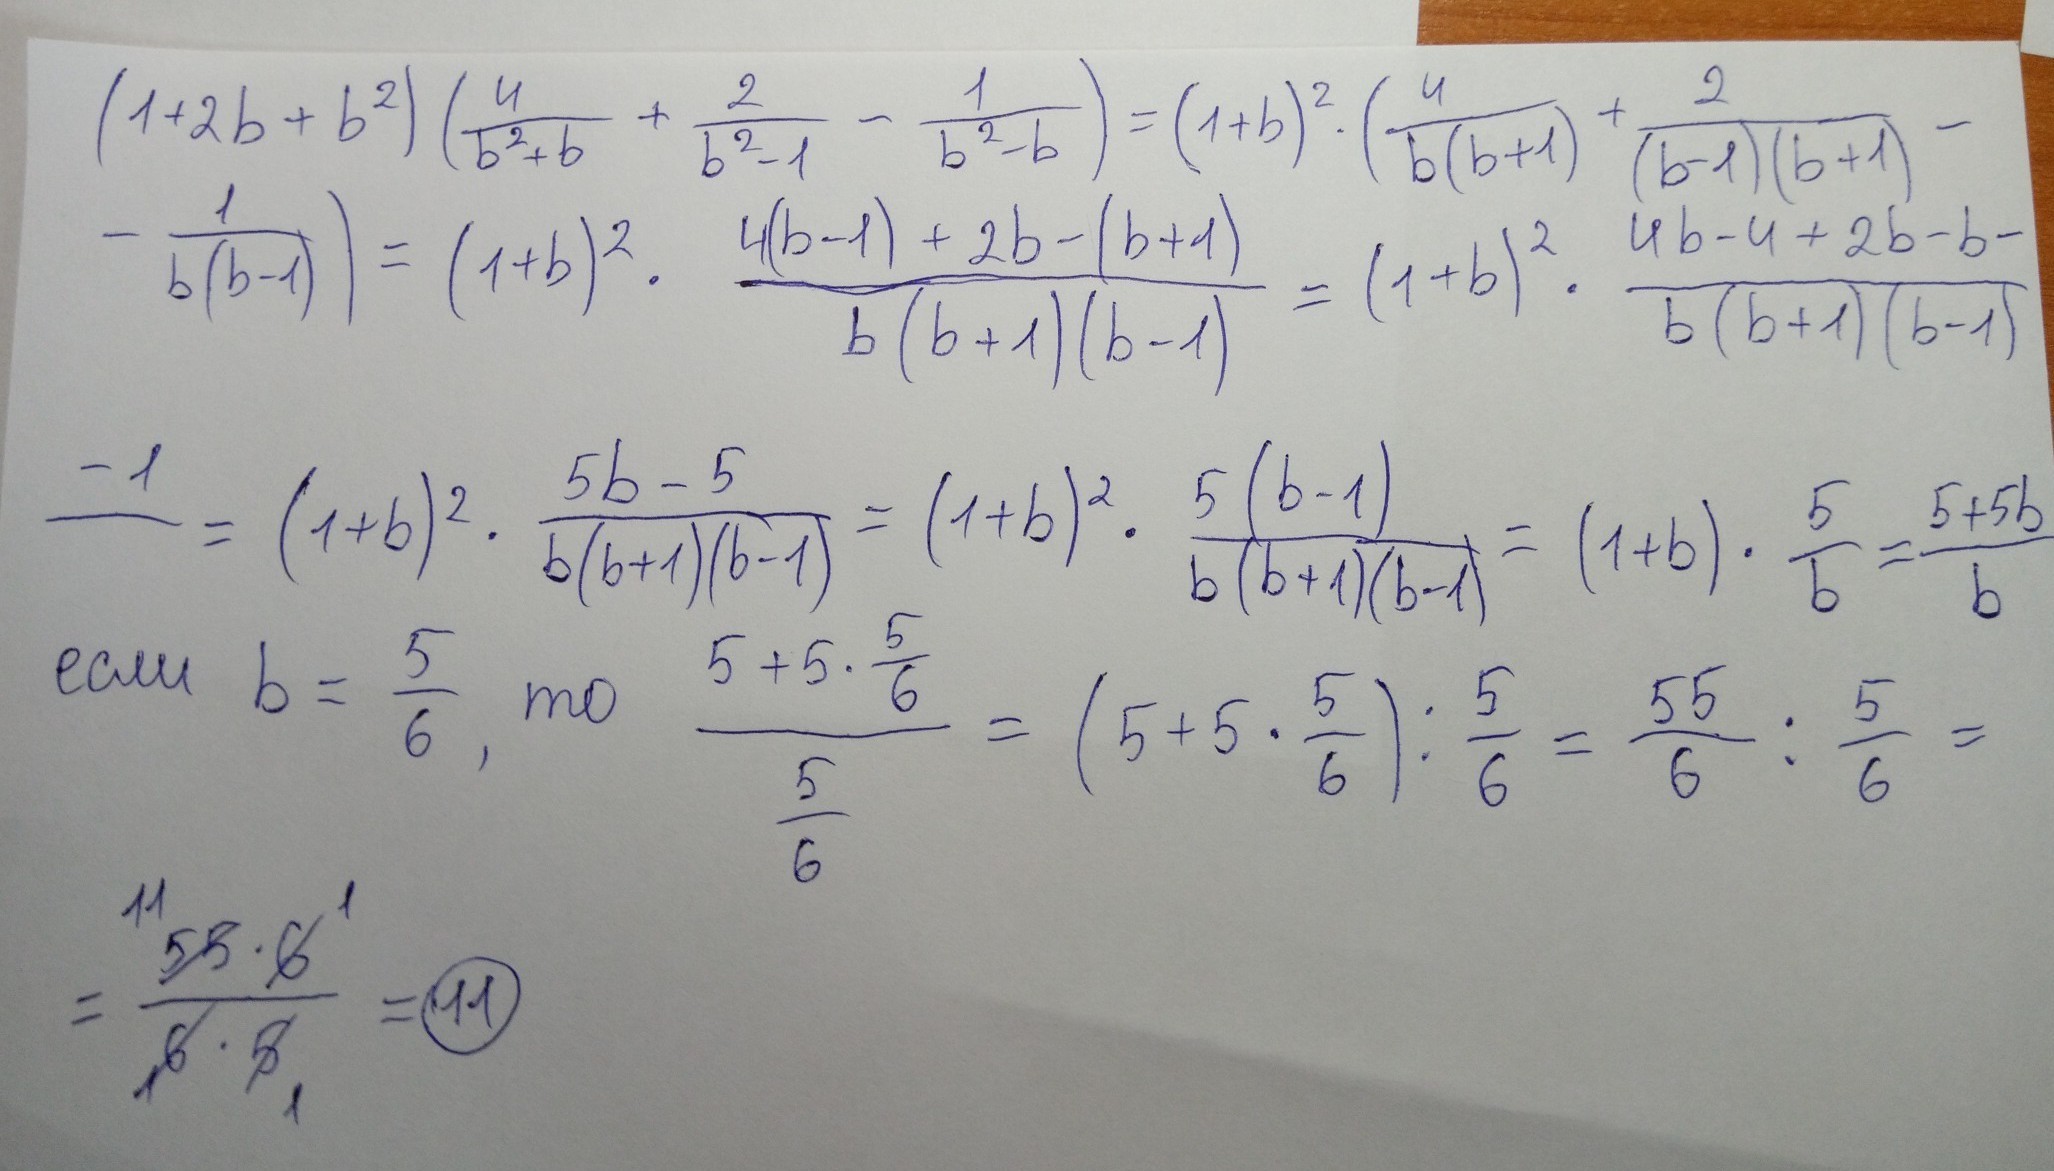 (1+2b+b²)(4/(b²+b) + 2/(b²-1) - 1/(b²-b)) = (1+b)²·(4/(b(b+1)) + 2/((b-1)(b+1)) -
- 1/(b(b-1))) = (1+b)² · (4(b-1)+2b-(b+1))/(b(b+1)(b-1)) = (1+b)² · (4b-4+2b-b-)/(b(b+1)(b-1))
-1 = (1+b)² · (5b-5)/(b(b+1)(b-1)) = (1+b)² · 5(b-1)/(b(b+1)(b-1)) = (1+b) · 5/b = (5+5b)/b
если b = 5/6, то (5+5·5/6)/(5/6) = (5+5·5/6) : 5/6 = 55/6 : 5/6 =
= 11 55·6 1 / 1 6·5 1 = 11